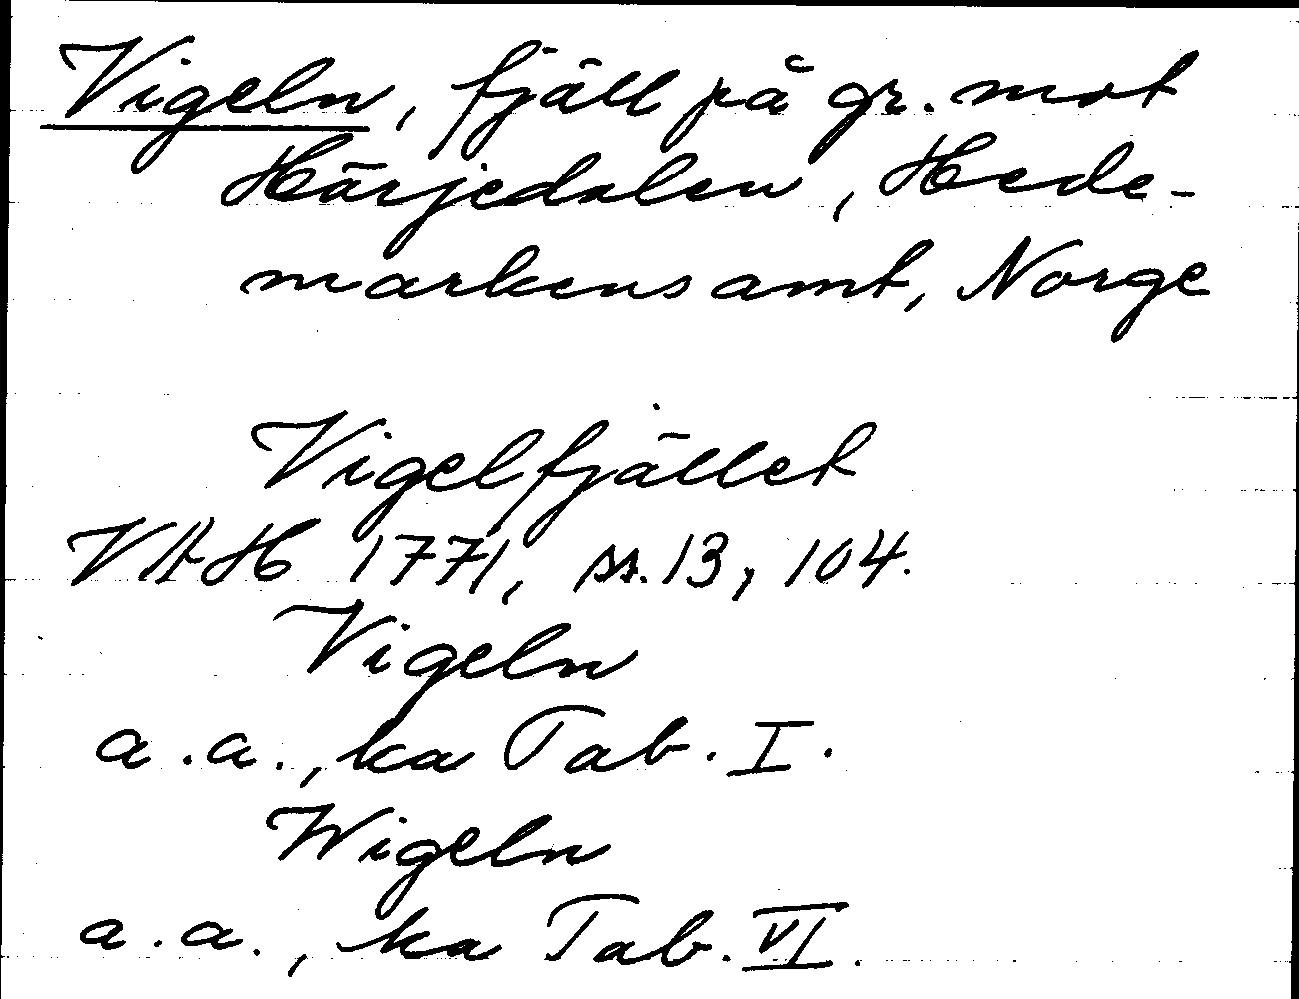 Vigeln, fjäll på gr. mot
Härjedalen, Hede-
markens amt, Norge
Vigelfjället
VAH 1771, ss. 13, 104.
Vigeln
a.a., ka Tab. I.
Wigeln
a.a., ka Tab. VI.